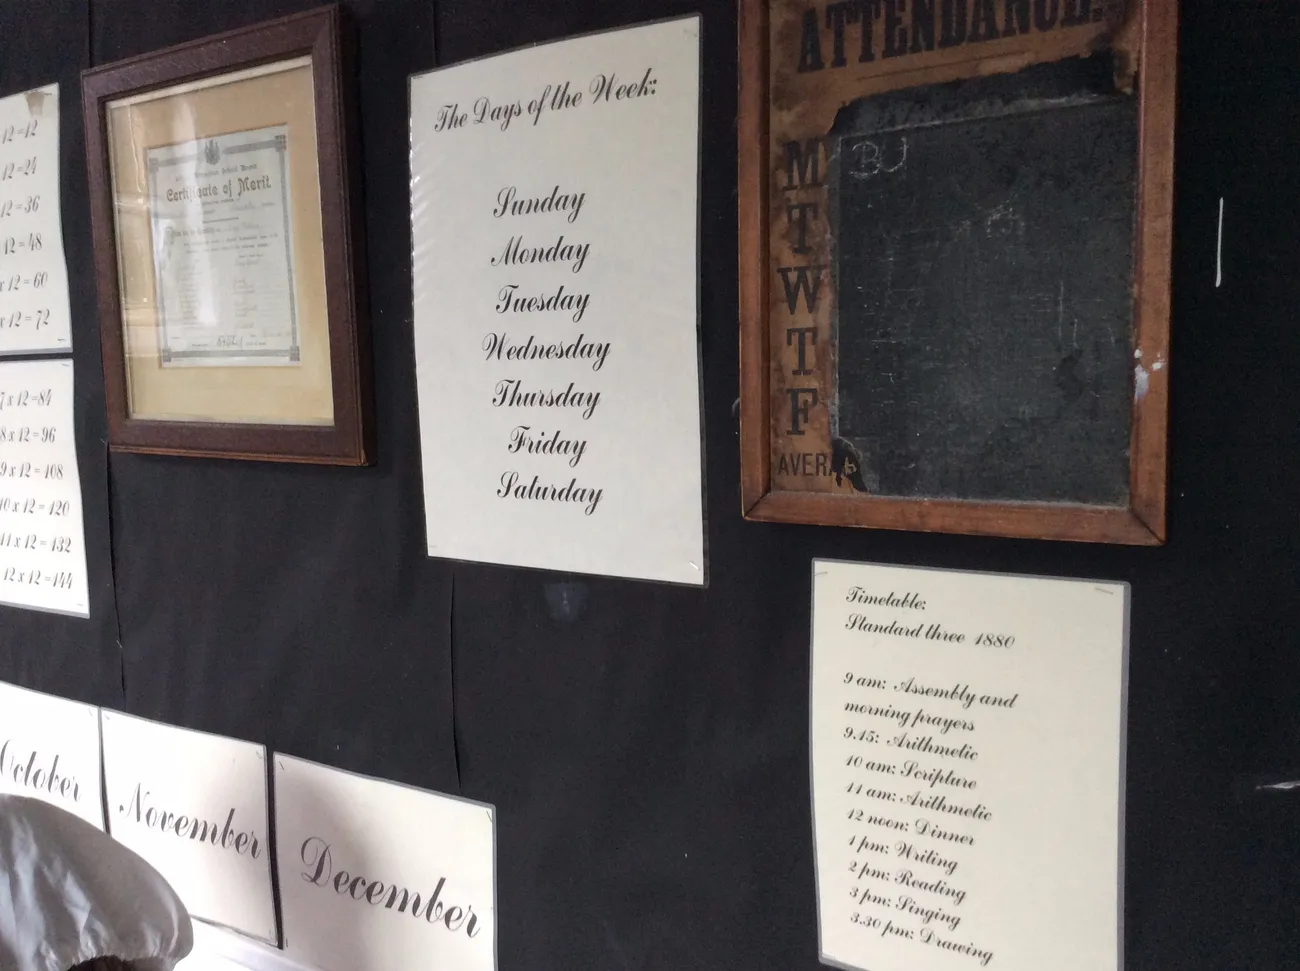 12=12
12=24
12=36
12=48
x 12=60
x 12=72
7 x 12=84
8 x 12=96
9 x 12=108
10 x 12=120
11 x 12=132
12 x 12=144
Certificate of Merit
The Days of the Week:
Sunday
Monday
Tuesday
Wednesday
Thursday
Friday
Saturday
ATTENDANCE.
M
T
W
T
F
AVERAG
BU
October
November
December
Timetable:
Standard three 1880
9 am: Assembly and
morning prayers
9.15: Arithmetic
10 am: Scripture
11 am: Arithmetic
12 noon: Dinner
1 pm: Writing
2 pm: Reading
3 pm: Singing
3.30 pm: Drawing